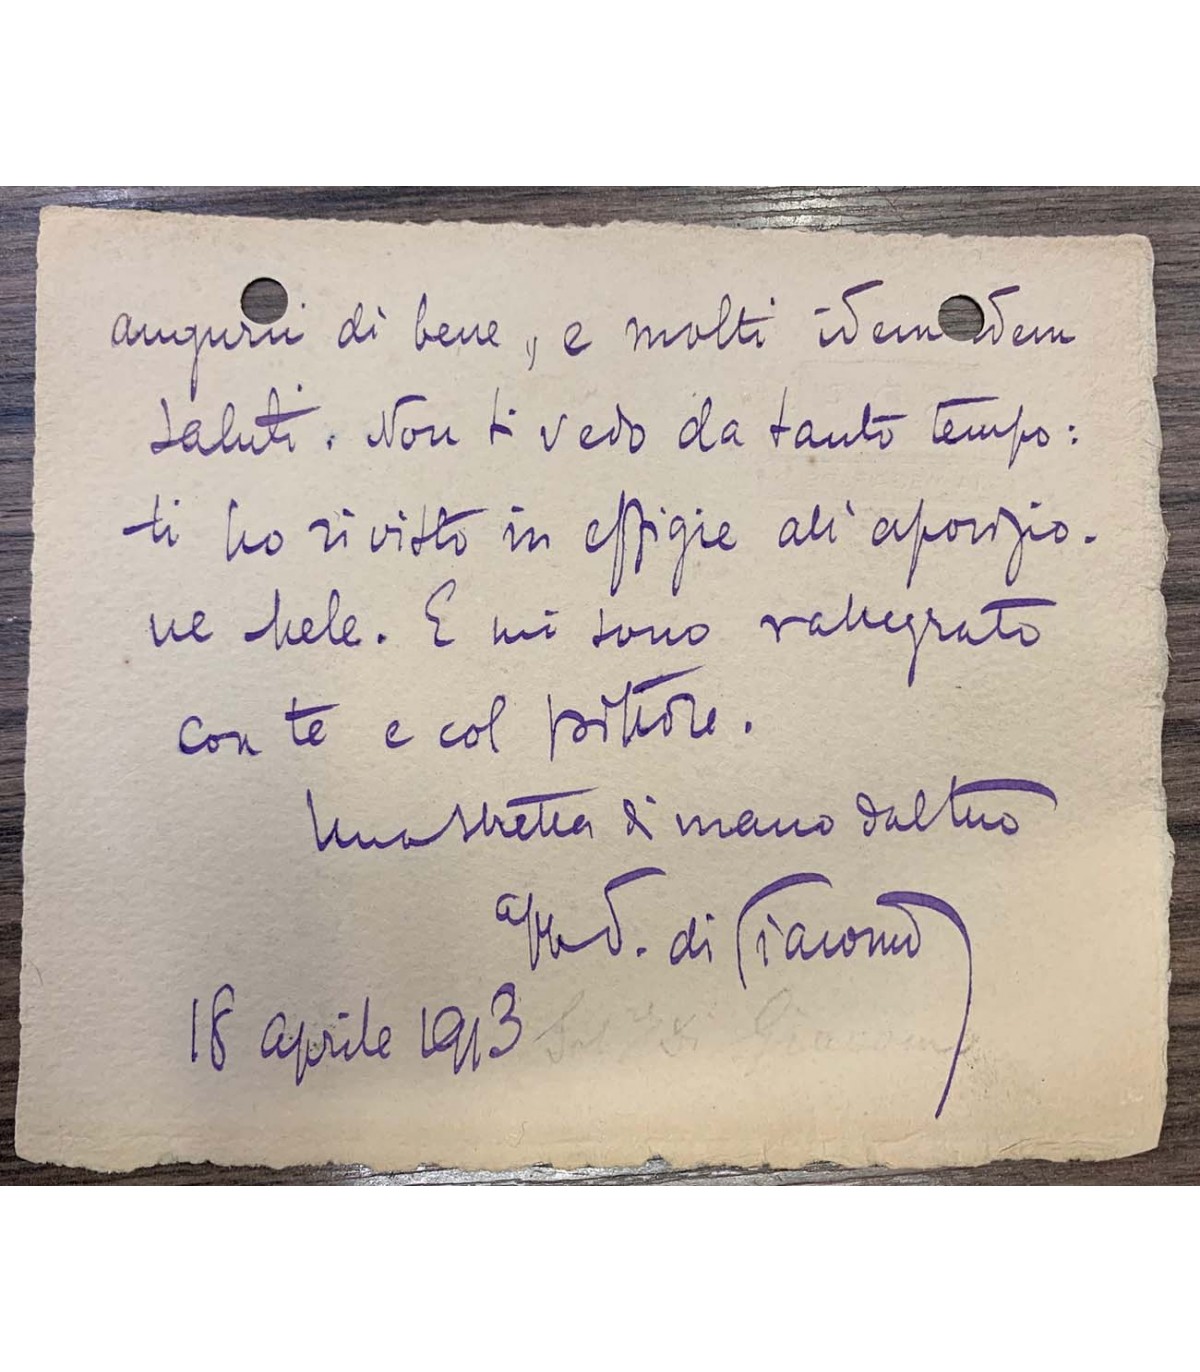 augurii di bene, e molti idem idem
saluti. Non ti vedo da tanto tempo:
ti ho rivisto in effigie all'esposizio-
ne . E mi sono rallegrato
con te e col pittore.
Una stretta di mano dal tuo
aff. S. di Giacomo
18 aprile 1913